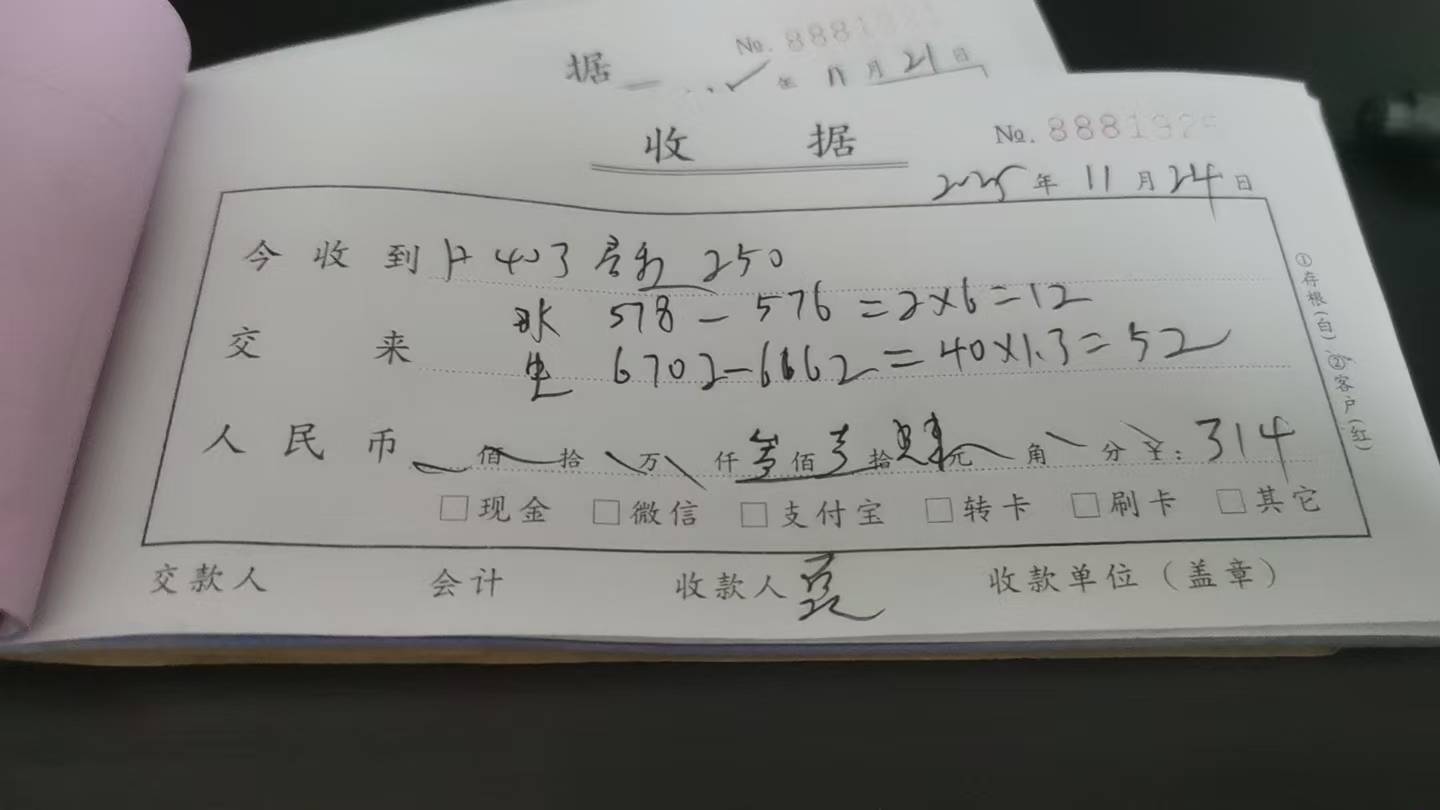 No. 8881921
据 年 11月21日
收 据 No. 888192
2025年11月24日
今收到 403 房租 250
水 578-576=2×6=12
交来
电 6702-6662=40×1.3=52
人民币 佰 拾 万 仟叁佰壹拾肆元 角 分 ¥:314
□现金 □微信 □支付宝 □转卡 □刷卡 □其它
交款人 会计 收款人 收款单位(盖章)
①存根(白)②客户(红)